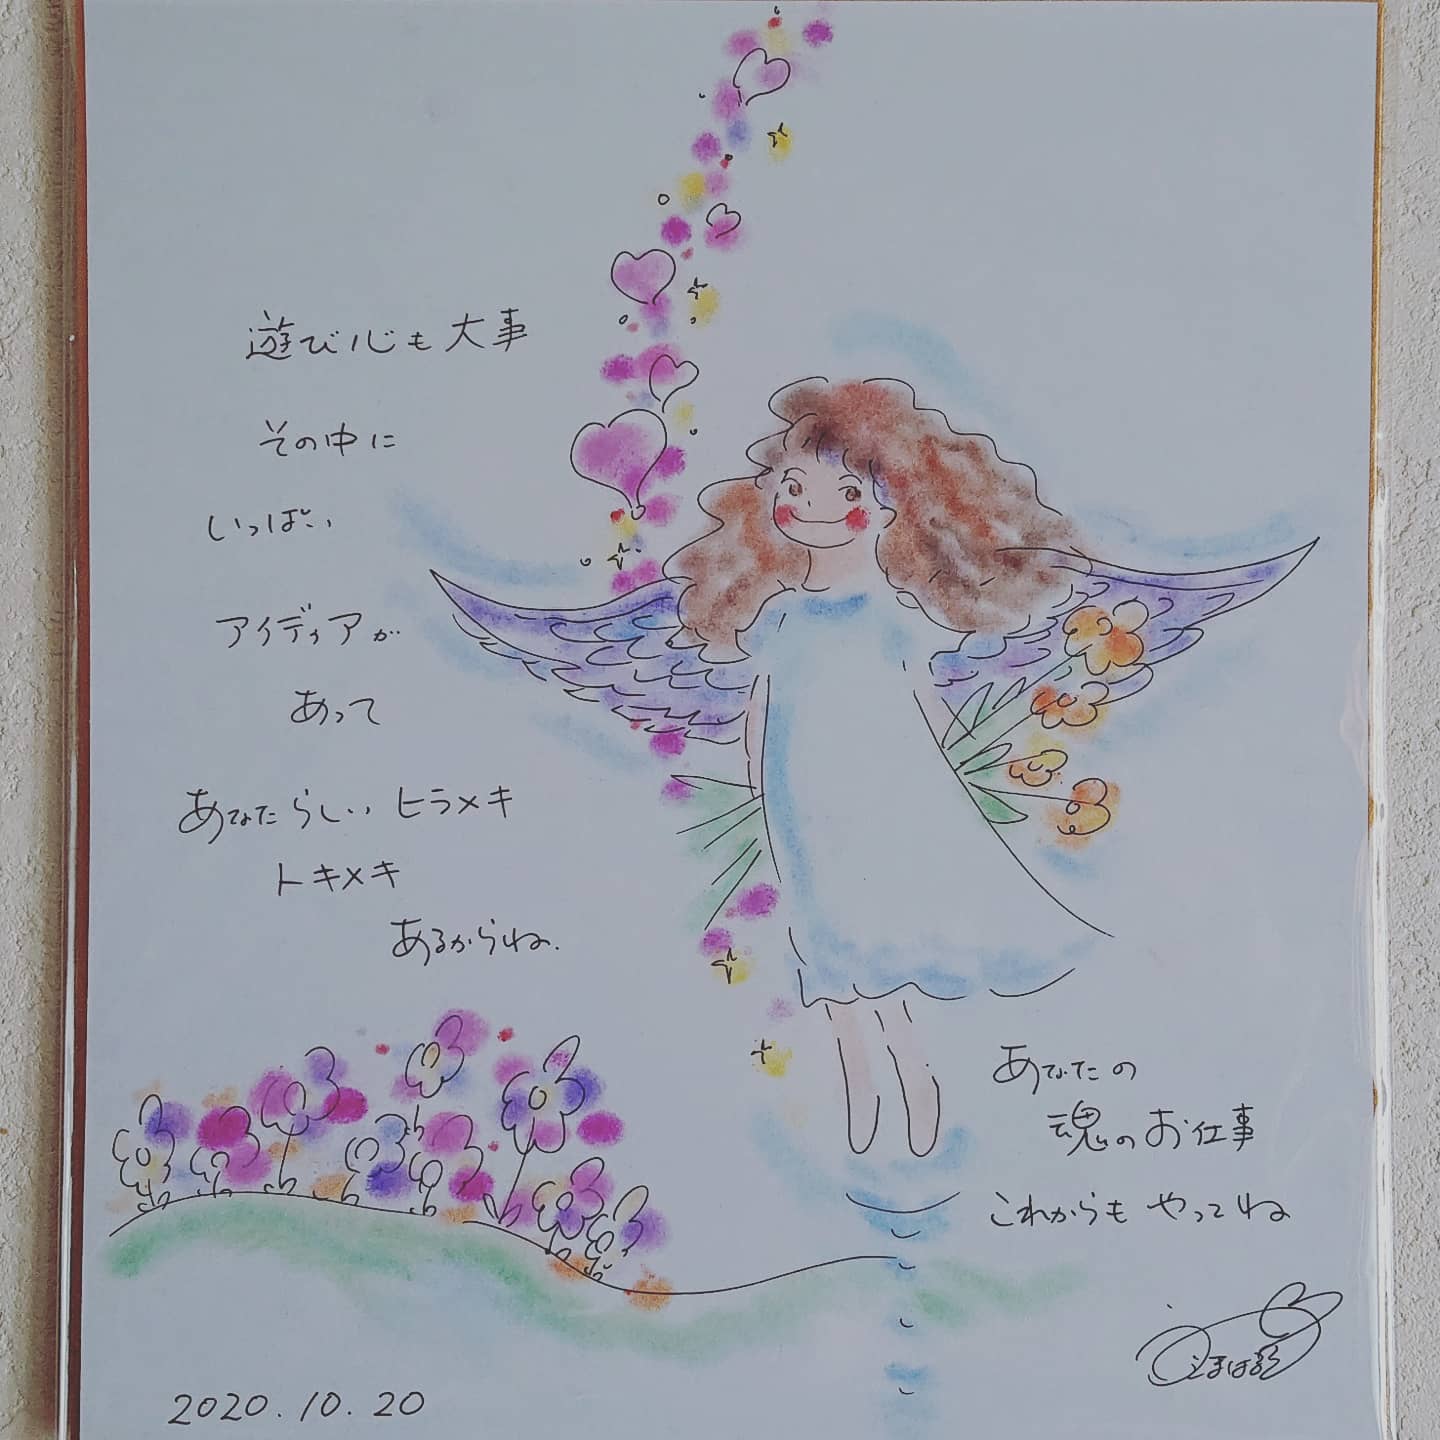 遊び心も大事
その中に
いっぱい
アイディアが
あって
あなたらしい ヒラメキ
トキメキ
あるからね.
あなたの
魂のお仕事
これからも やってね
2020.10.20